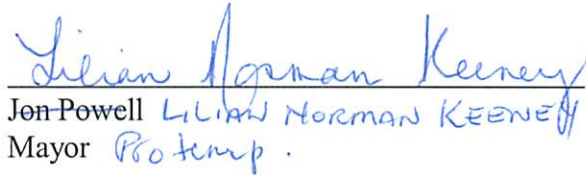 Lilian Norman Keeney
Jon Powell LILIAN NORMAN KEENEY
Mayor Pro temp.